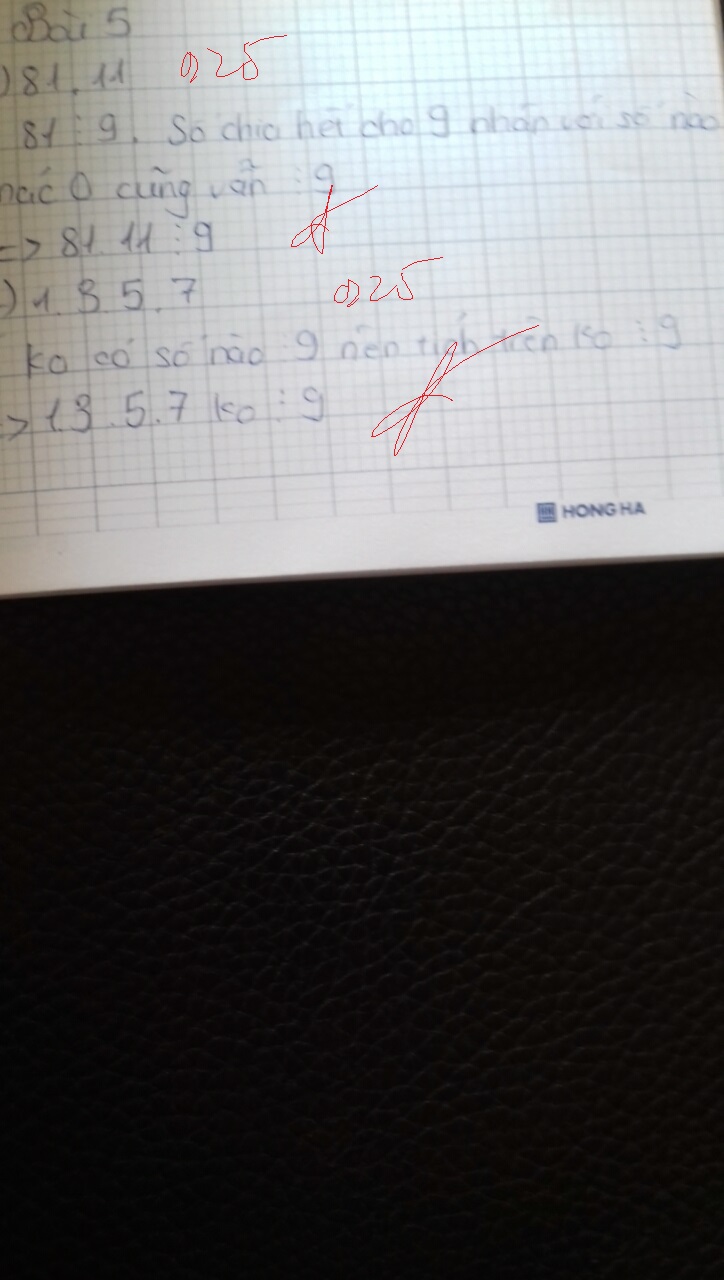 Bài 5
)81.11 0,25
81⋮9. Số chia hết cho 9 nhân với số nào
khác 0 cũng vẫn ⋮9
=> 81.11⋮9
)1.3.5.7 0,25
ko có số nào ⋮9 nên tích trên ko ⋮9
=> 1.3.5.7 ko ⋮9
HONG HA